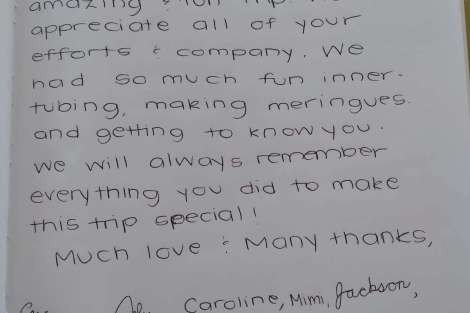 amazing & fun trip. We
appreciate all of your
efforts & company. We
had so much fun inner-
tubing, making meringues.
and getting to know you.
we will always remember
everything you did to make
this trip special!
Much love & Many thanks,
Caroline, Mimi, Jackson,